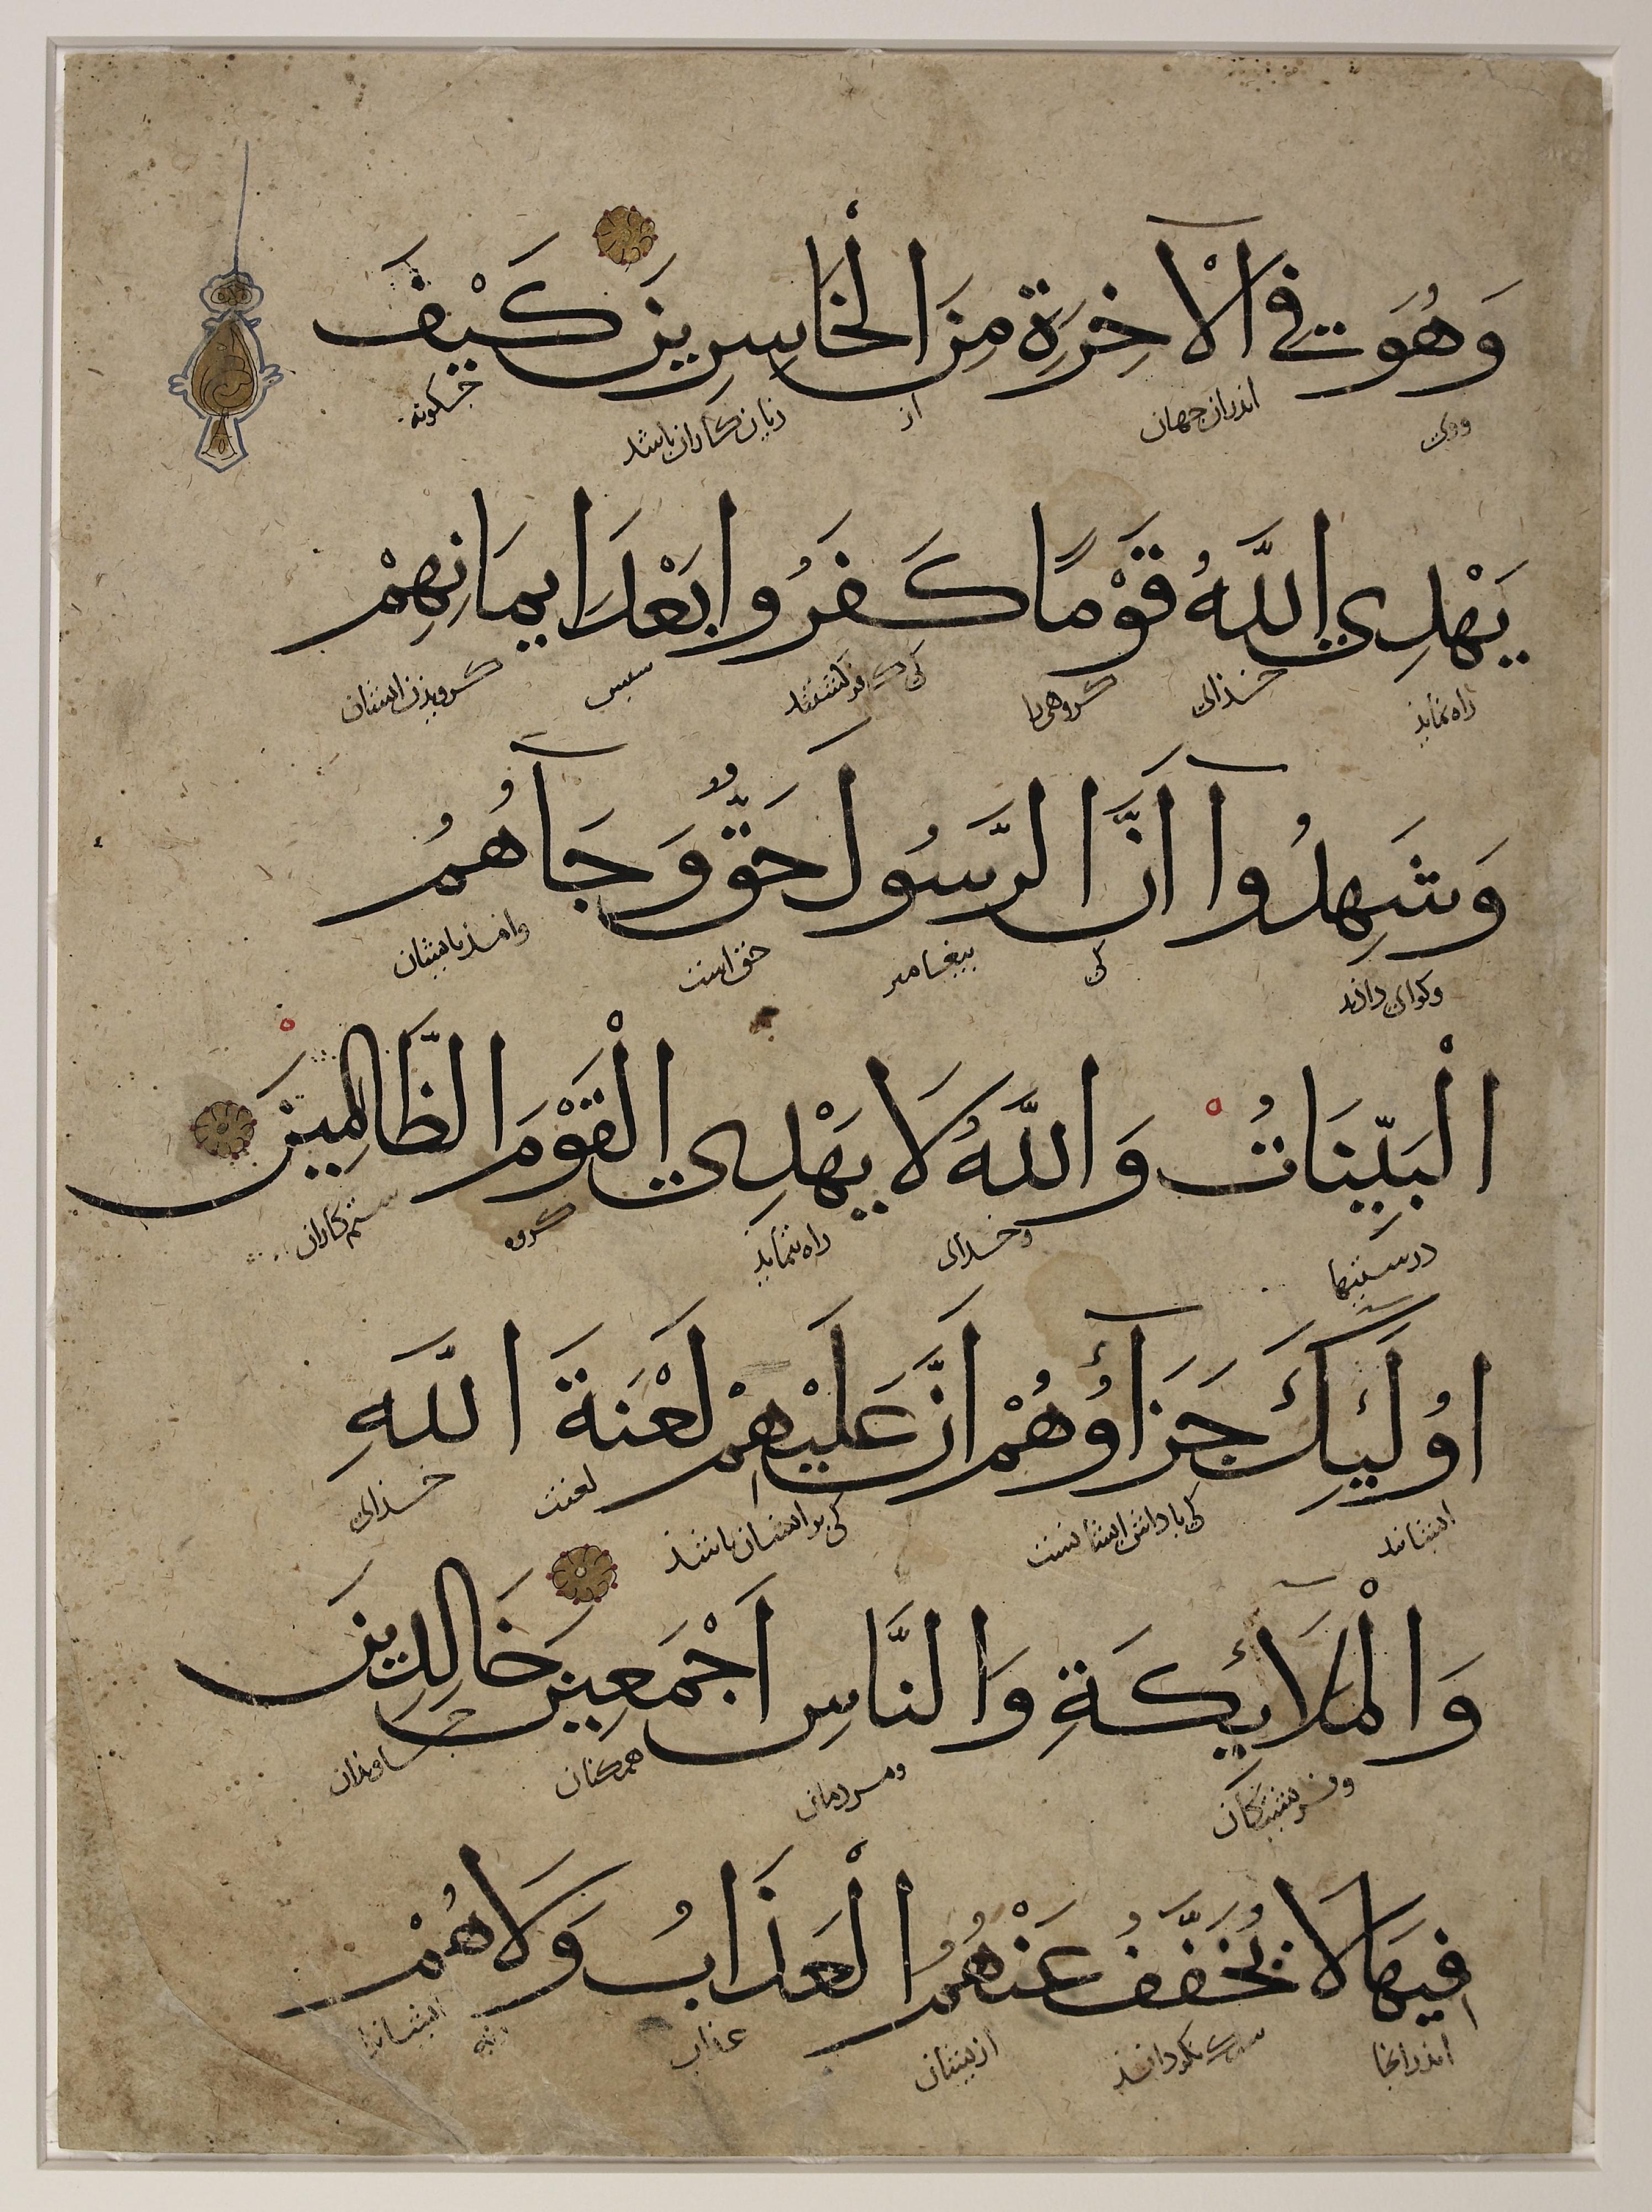 وَهُوَ فِي الْآخِرَةِ مِنَ الْخَاسِرِينَ كَيْفَ
ووى اندران جهان از زیان کاران باشد چکونه
يَهْدِي اللَّهُ قَوْمًا كَفَرُوا بَعْدَ ايمَانِهِمْ
راه نماید خذای کروهی را کی کافر کشتند سپس کرویذن ایشان
وَشَهِدُوآ أَنَّ الرَّسُولَ حَقٌّ وَجَآهُمُ
وکوای دادند کی پیغامبر حق است وامذ بایشان
الْبَيِّنَاتُ وَاللَّهُ لَا يَهْدِي الْقَوْمَ الظَّالِمِينَ
درستیها وخذای راه ننماید کروه ستم کاران
اوُلَئِكَ جَزَآؤُهُمْ أَنَّ عَلَيْهِمْ لَعْنَةَ اللَّهِ
ایشانند کی باداش ایشانست کی بر ایشان باشذ لعنت خذای
وَالْمَلَآئِكَةِ وَالنَّاسِ اَجْمَعِينَ خَالِدِينَ
وفریشتکان ومردمان همکنان جاویذان
فِيهَا لَا يُخَفَّفُ عَنْهُمُ الْعَذَابُ وَلَا هُمْ
اندرانجا سبک نکردانند ازیشان عذاب ونه ایشانرا